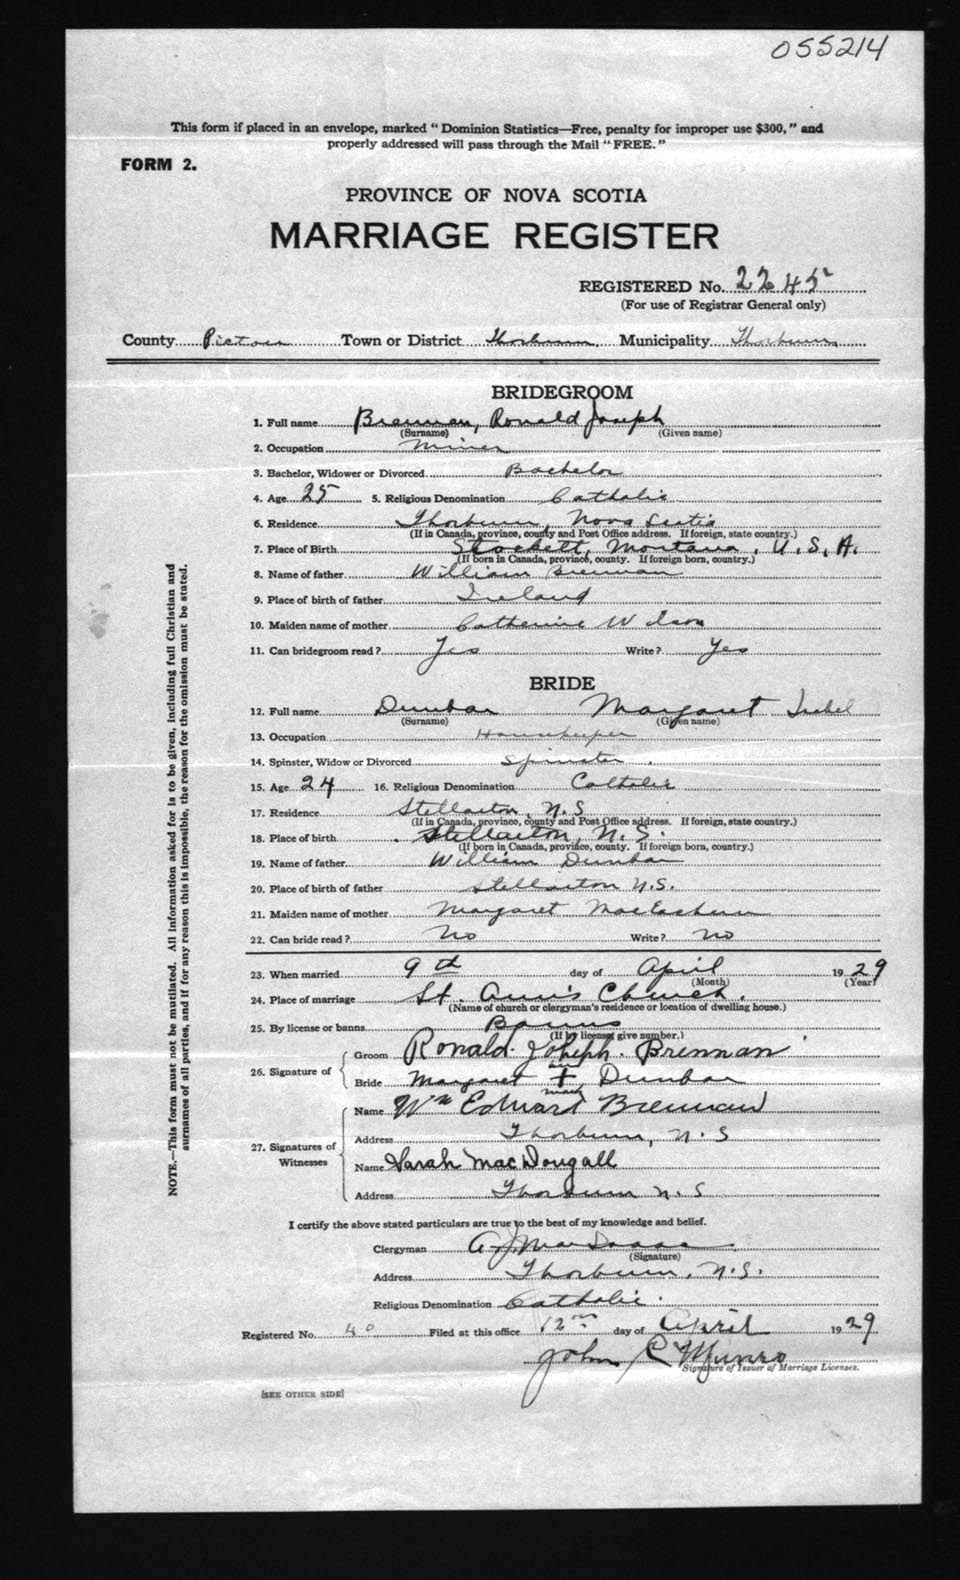 055214
This form if placed in an envelope, marked "Dominion Statistics—Free, penalty for improper use $300," and
properly addressed will pass through the Mail "FREE."
FORM 2.
PROVINCE OF NOVA SCOTIA
MARRIAGE REGISTER
REGISTERED No. 2245
(For use of Registrar General only)
County Pictou Town or District Thorburn Municipality Thorburn
BRIDEGROOM
1. Full name Brennan, Ronald Joseph
(Surname) (Given name)
2. Occupation Miner
3. Bachelor, Widower or Divorced Bachelor
4. Age 25 5. Religious Denomination Catholic
6. Residence Thorburn, Nova Scotia
(If in Canada, province, county and Post Office address. If foreign, state country.)
7. Place of Birth Stockett, Montana, U.S.A.
(If born in Canada, province, county. If foreign born, country.)
8. Name of father William Brennan
9. Place of birth of father Ireland
10. Maiden name of mother Catherine Wilson
11. Can bridegroom read? Yes Write? Yes
BRIDE
12. Full name Dunbar Margaret Isabel
(Surname) (Given name)
13. Occupation Housekeeper
14. Spinster, Widow or Divorced Spinster
15. Age 24 16. Religious Denomination Catholic
17. Residence Stellarton, N.S
(If in Canada, province, county and Post Office address. If foreign, state country.)
18. Place of birth Stellarton, N.S.
(If born in Canada, province, county. If foreign born, country.)
19. Name of father William Dunbar
20. Place of birth of father Stellarton N.S.
21. Maiden name of mother Margaret MacEachern
22. Can bride read? No Write? No
23. When married 9th day of April 1929
(Month) (Year)
24. Place of marriage St. Ann's Church.
(Name of church or clergyman's residence or location of dwelling house.)
25. By license or banns Banns
(If by license, give number.)
26. Signature of
Groom Ronald Joseph Brennan
Bride Margaret + Dunbar
her
mark
27. Signatures of
Witnesses
Name Wm Edward Brennan
Address Thorburn, N.S
Name Sarah MacDougall
Address Thorburn N.S
I certify the above stated particulars are true to the best of my knowledge and belief.
Clergyman A. J. MacIsaac
(Signature)
Address Thorburn, N.S.
Religious Denomination Catholic.
Registered No. 40 Filed at this office 12th day of April 1929
John C Munro
Signature of Issuer of Marriage Licenses.
[SEE OTHER SIDE]
NOTE.—This form must not be mutilated. All information asked for is to be given, including full Christian and
surnames of all parties, and if for any reason this is impossible, the reason for the omission must be stated.